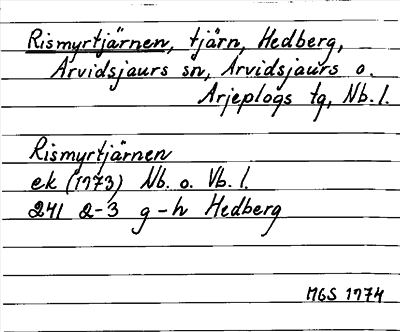 Rismyrtjärnen, tjärn, Hedberg,
Arvidsjaurs sn, Arvidsjaurs o.
Arjeplogs tg, Nb. l.
Rismyrtjärnen
ek (1973) Nb. o. Vb. l.
241 2-3 g-h Hedberg
MGS 1974